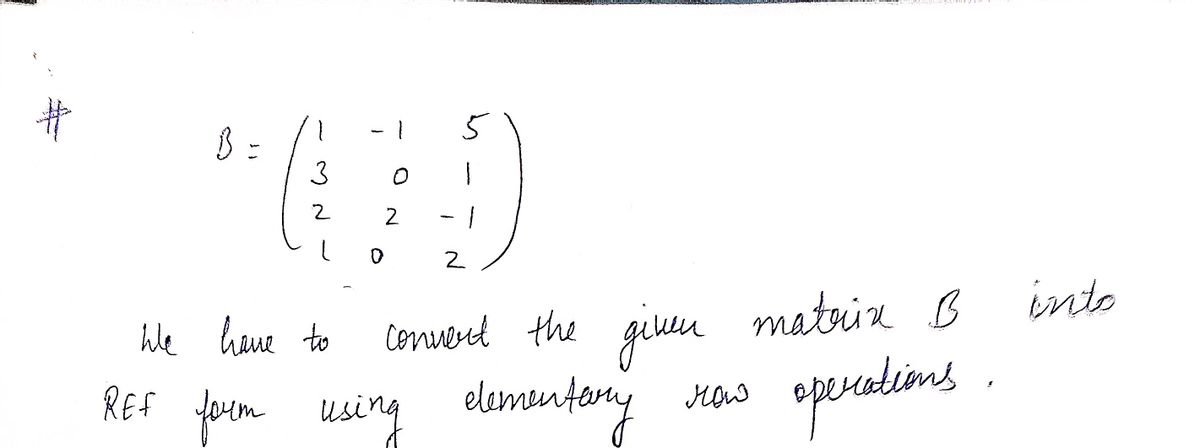 #
B = ( 1 -1 5
3 0 1
2 2 -1
1 0 2 )
We have to convert the given matrix B into
REF form using elementary row operations.